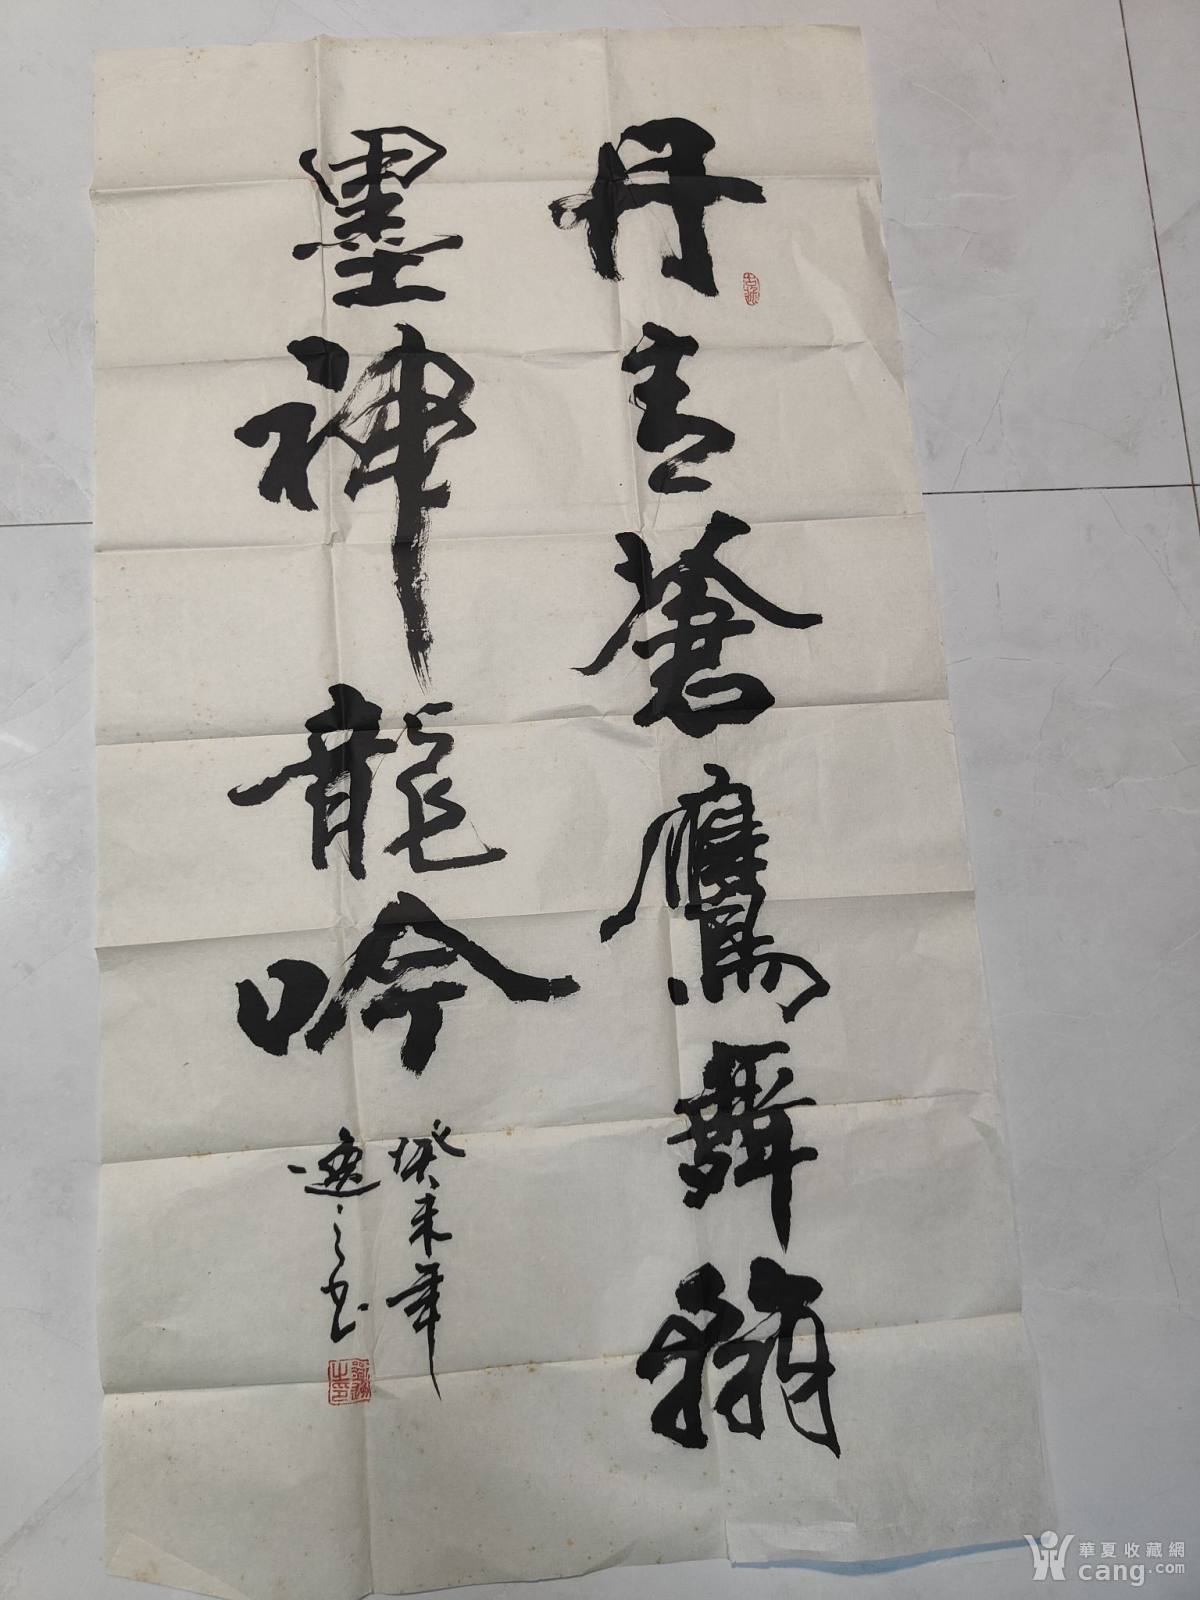 丹青蒼鷹舞翰
墨神龍吟
癸未年
之书
華夏收藏網
cang.com